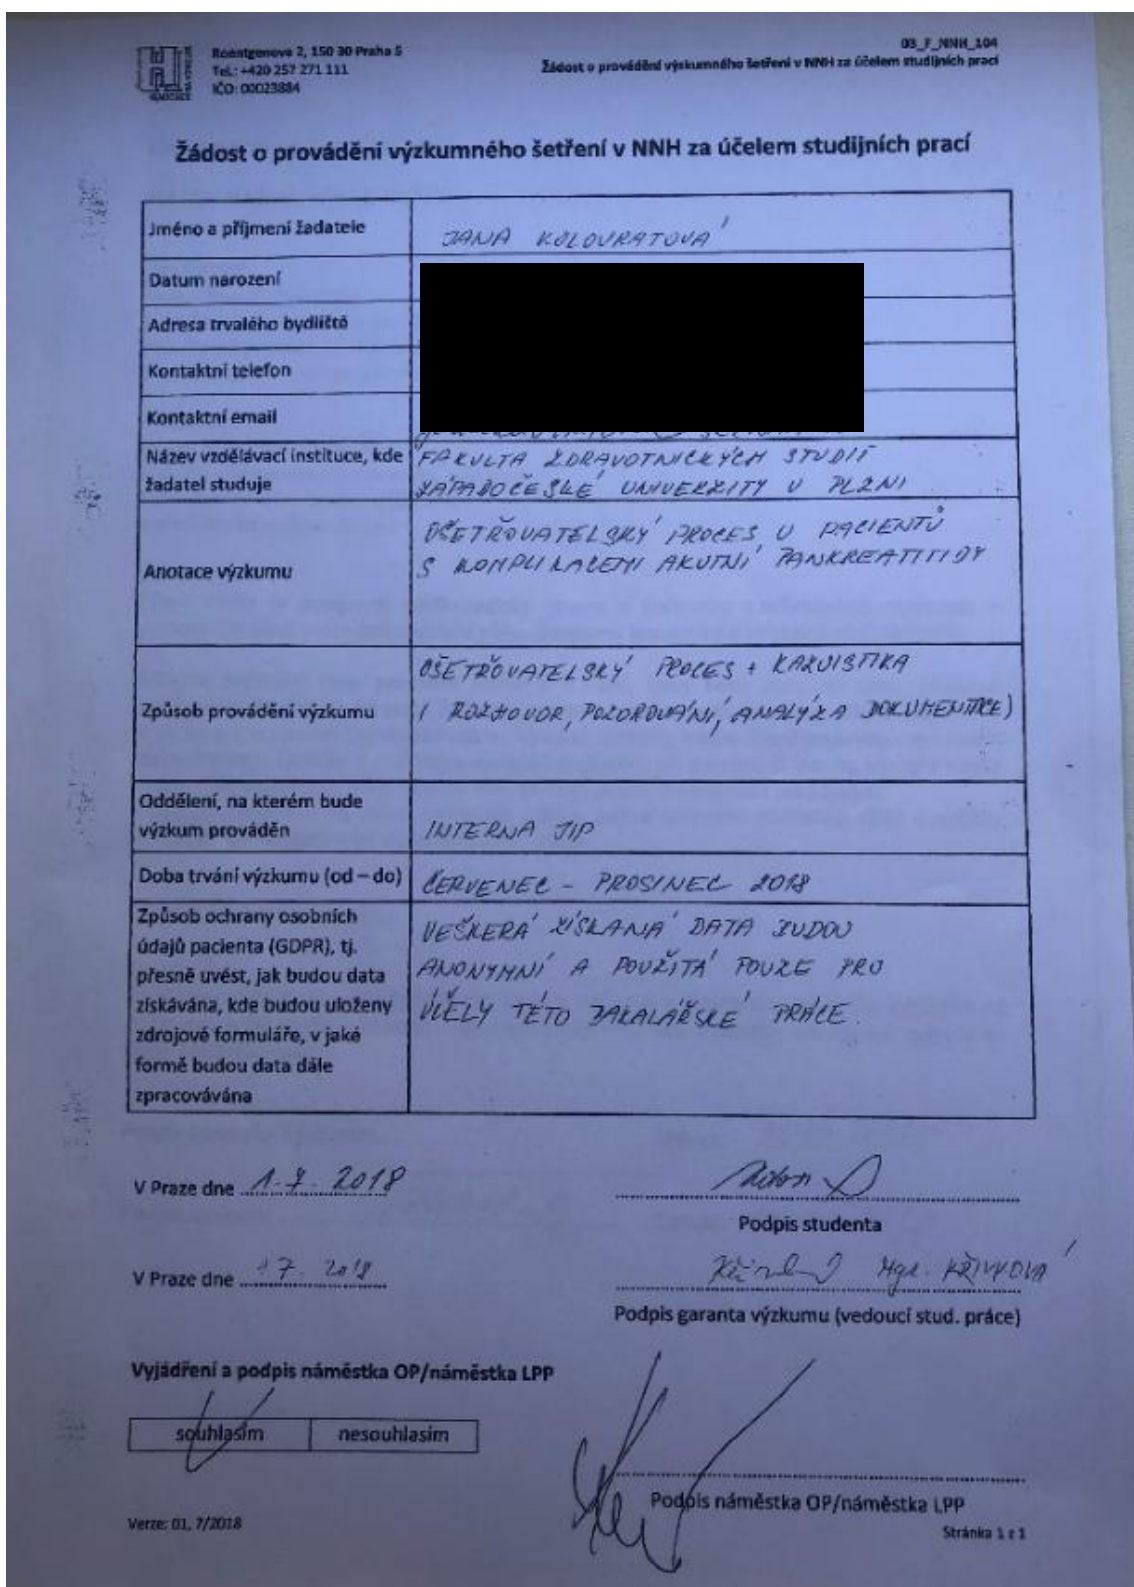 Roentgenova 2, 150 30 Praha 5
Tel.: +420 257 271 111
IČO: 00023884
NEMOCNICE
NA HOMOLCE
03_F_NNH_104
Žádost o provádění výzkumného šetření v NNH za účelem studijních prací
Žádost o provádění výzkumného šetření v NNH za účelem studijních prací
Jméno a příjmení žadatele
JANA KOLOVRATOVÁ
Datum narození
Adresa trvalého bydliště
Kontaktní telefon
Kontaktní email
Název vzdělávací instituce, kde
žadatel studuje
FAKULTA ZDRAVOTNICKÝCH STUDIÍ
ZÁPADOČESKÉ UNIVERZITY V PLZNI
Anotace výzkumu
OŠETŘOVATELSKÝ PROCES U PACIENTŮ
S KOMPLIKACEMI AKUTNÍ PANKREATITIDY
Způsob provádění výzkumu
OŠETŘOVATELSKÝ PROCES + KAZUISTIKA
( ROZHOVOR, POZOROVÁNÍ, ANALÝZA DOKUMENTACE)
Oddělení, na kterém bude
výzkum prováděn
INTERNA JIP
Doba trvání výzkumu (od – do)
ČERVENEC – PROSINEC 2018
Způsob ochrany osobních
údajů pacienta (GDPR), tj.
přesně uvést, jak budou data
získávána, kde budou uloženy
zdrojové formuláře, v jaké
formě budou data dále
zpracovávána
VEŠKERÁ ZÍSKANÁ DATA BUDOU
ANONYMNÍ A POUŽITÁ POUZE PRO
ÚČELY TÉTO BAKALÁŘSKÉ PRÁCE.
V Praze dne 1.7.2018
Podpis studenta
V Praze dne 1 7. 2018
Mgr. KŘIVKOVÁ
Podpis garanta výzkumu (vedoucí stud. práce)
Vyjádření a podpis náměstka OP/náměstka LPP
souhlasím nesouhlasím
Podpis náměstka OP/náměstka LPP
Verze: 01, 7/2018
Stránka 1 z 1